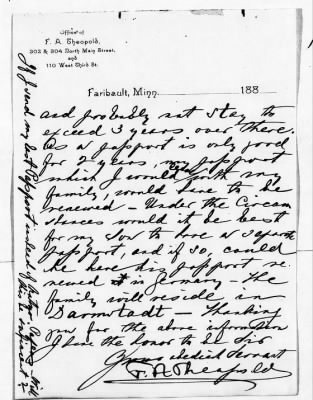 Office of
F. A. Theopold,
302 & 304 North Main Street,
and
110 West Third St.
Faribault, Minn. 188
and probably not stay to
exceed 3 years over there.
As a passport is only good
for 2 years, my passport
which I would with my
family, would have to be
renewed – Under the Circum
stances would it be best
for my Son to have a separate
passport, and if so, could
he have his passport re-
newed in Germany – The
family will reside in
Darmstadt – Thanking
you for the above information
I have the honor to be Sir
Your obedient Servant
F. A. Theopold
If I send my last Passport instead of
this be sufficient?